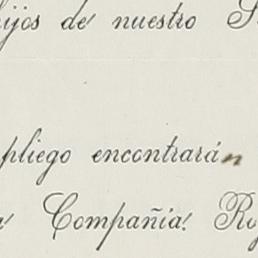 hijos de nuestro S
pliego encontrarán
a Compañia. Ro